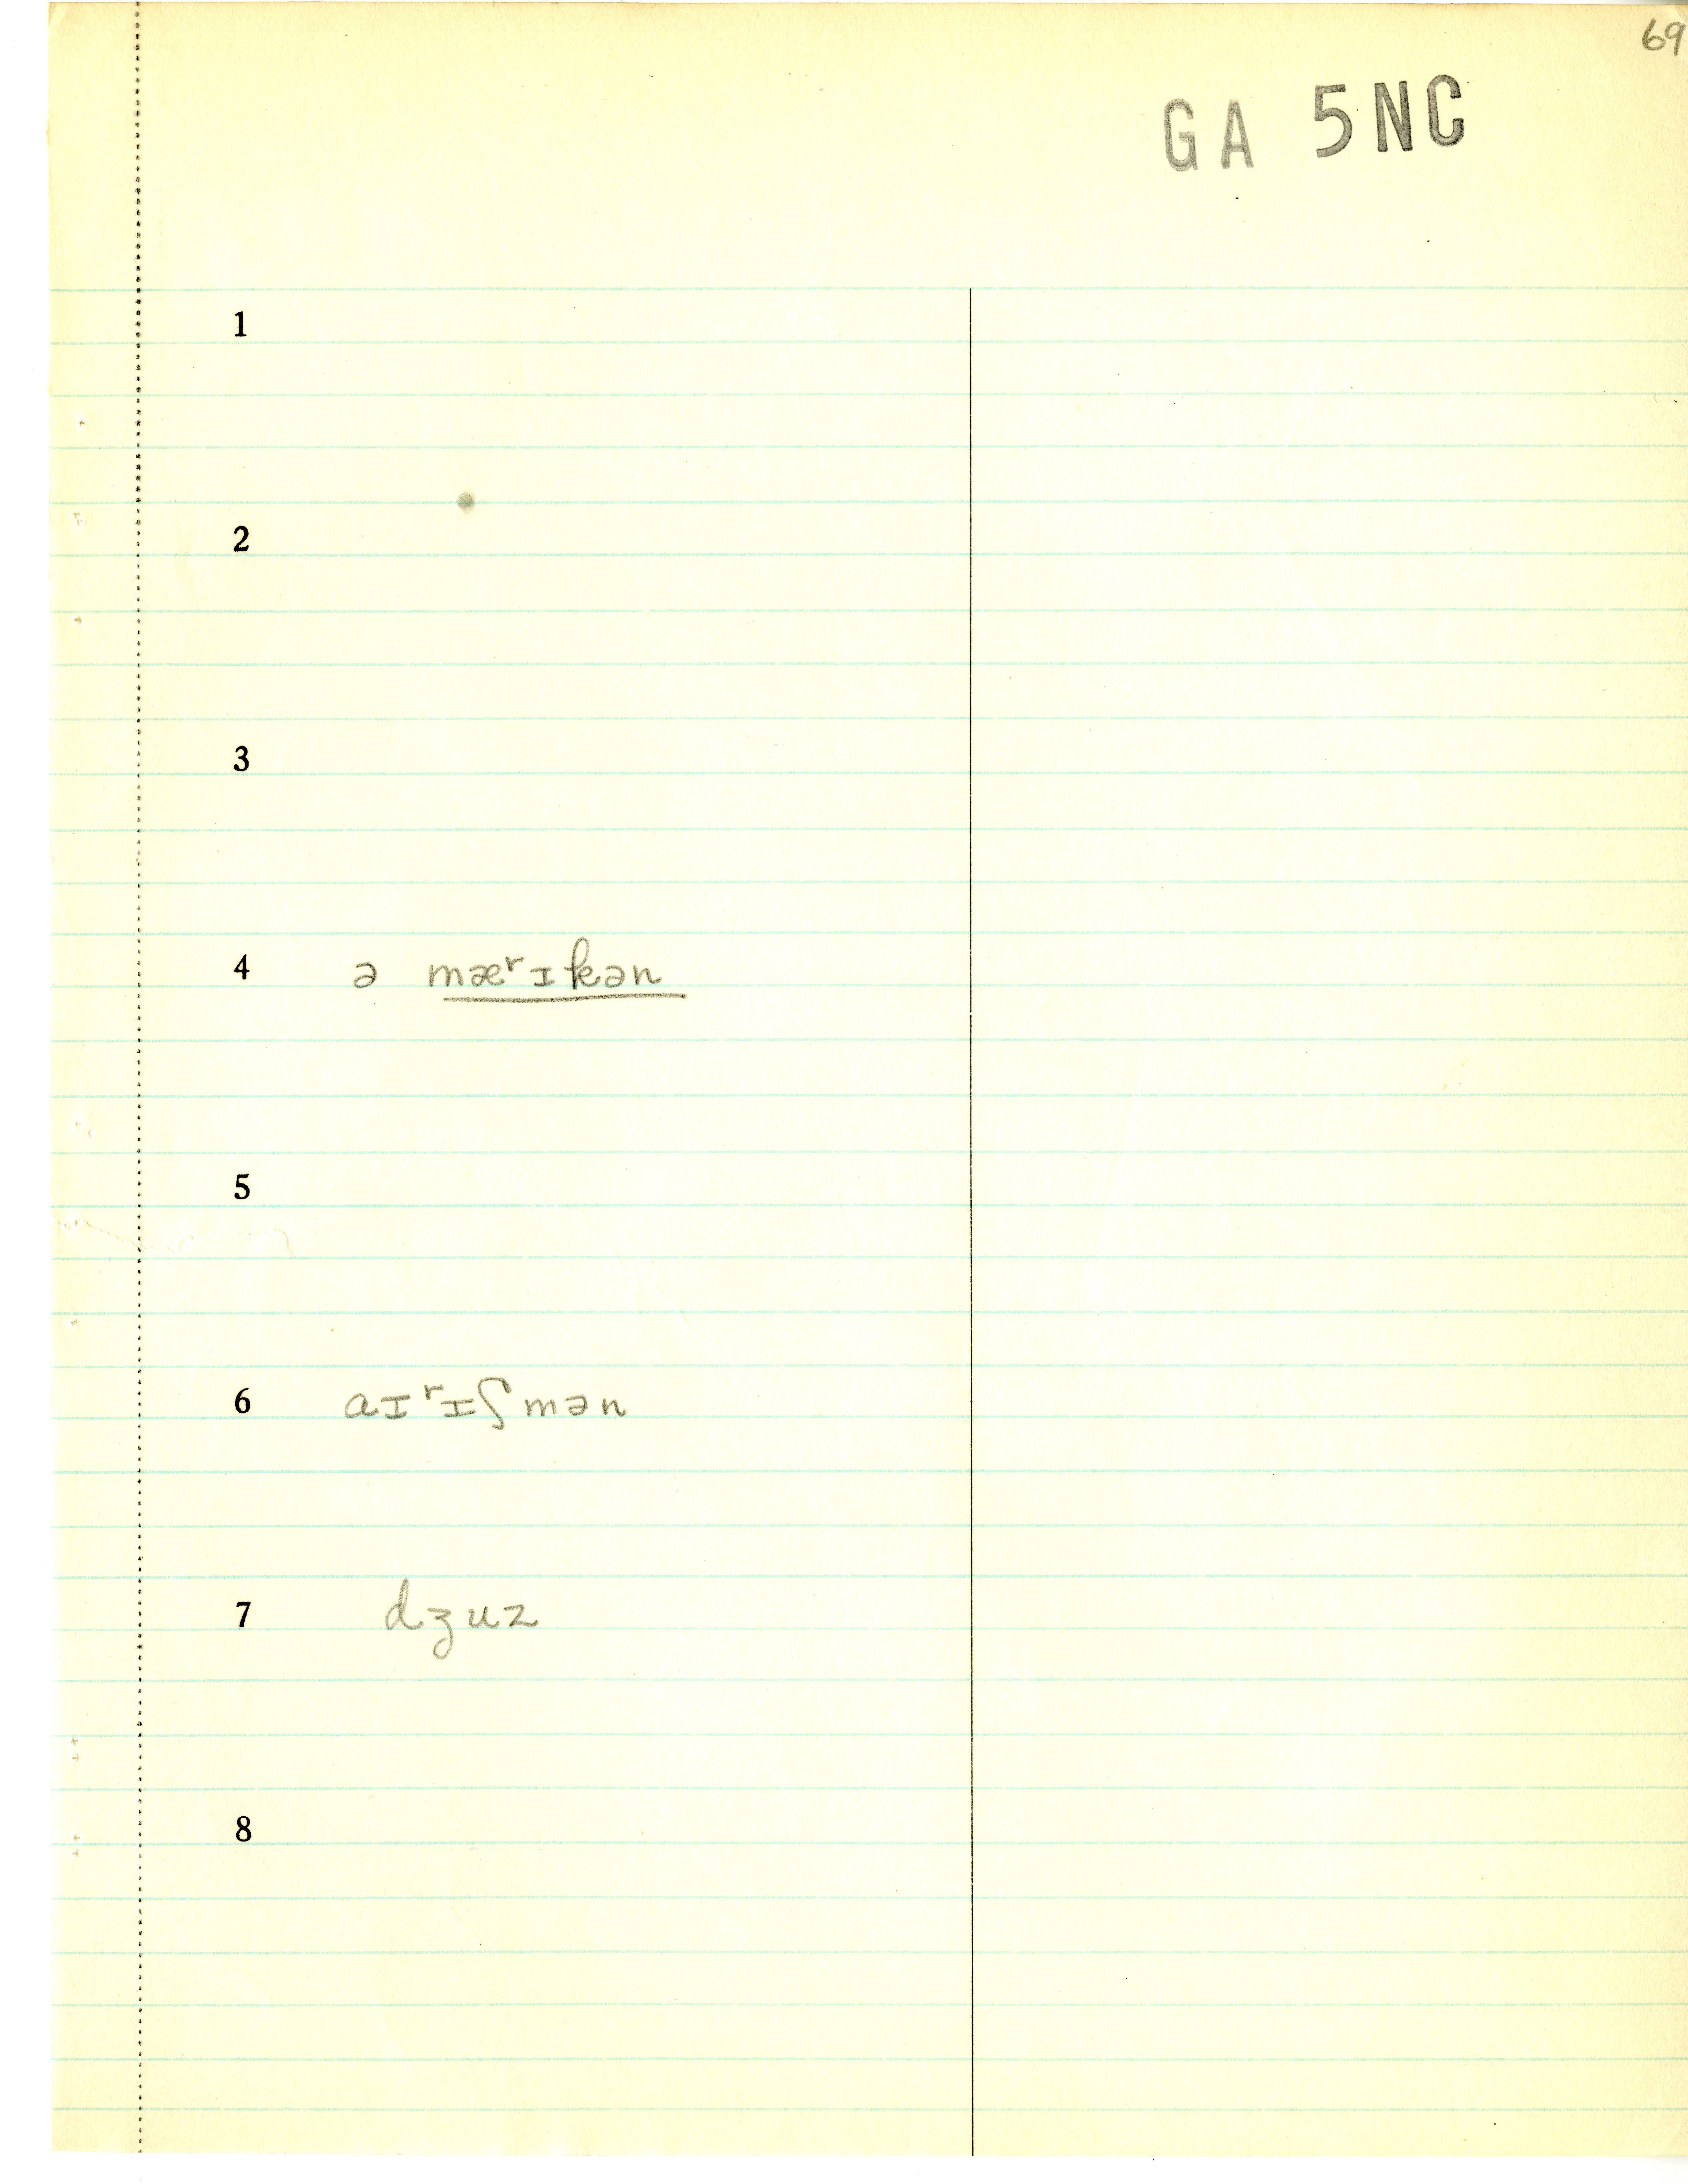 69
GA 5NC
1
2
3
4 ə mærɪkən
5
6 aɪrɪʃmən
7 dʒuz
8